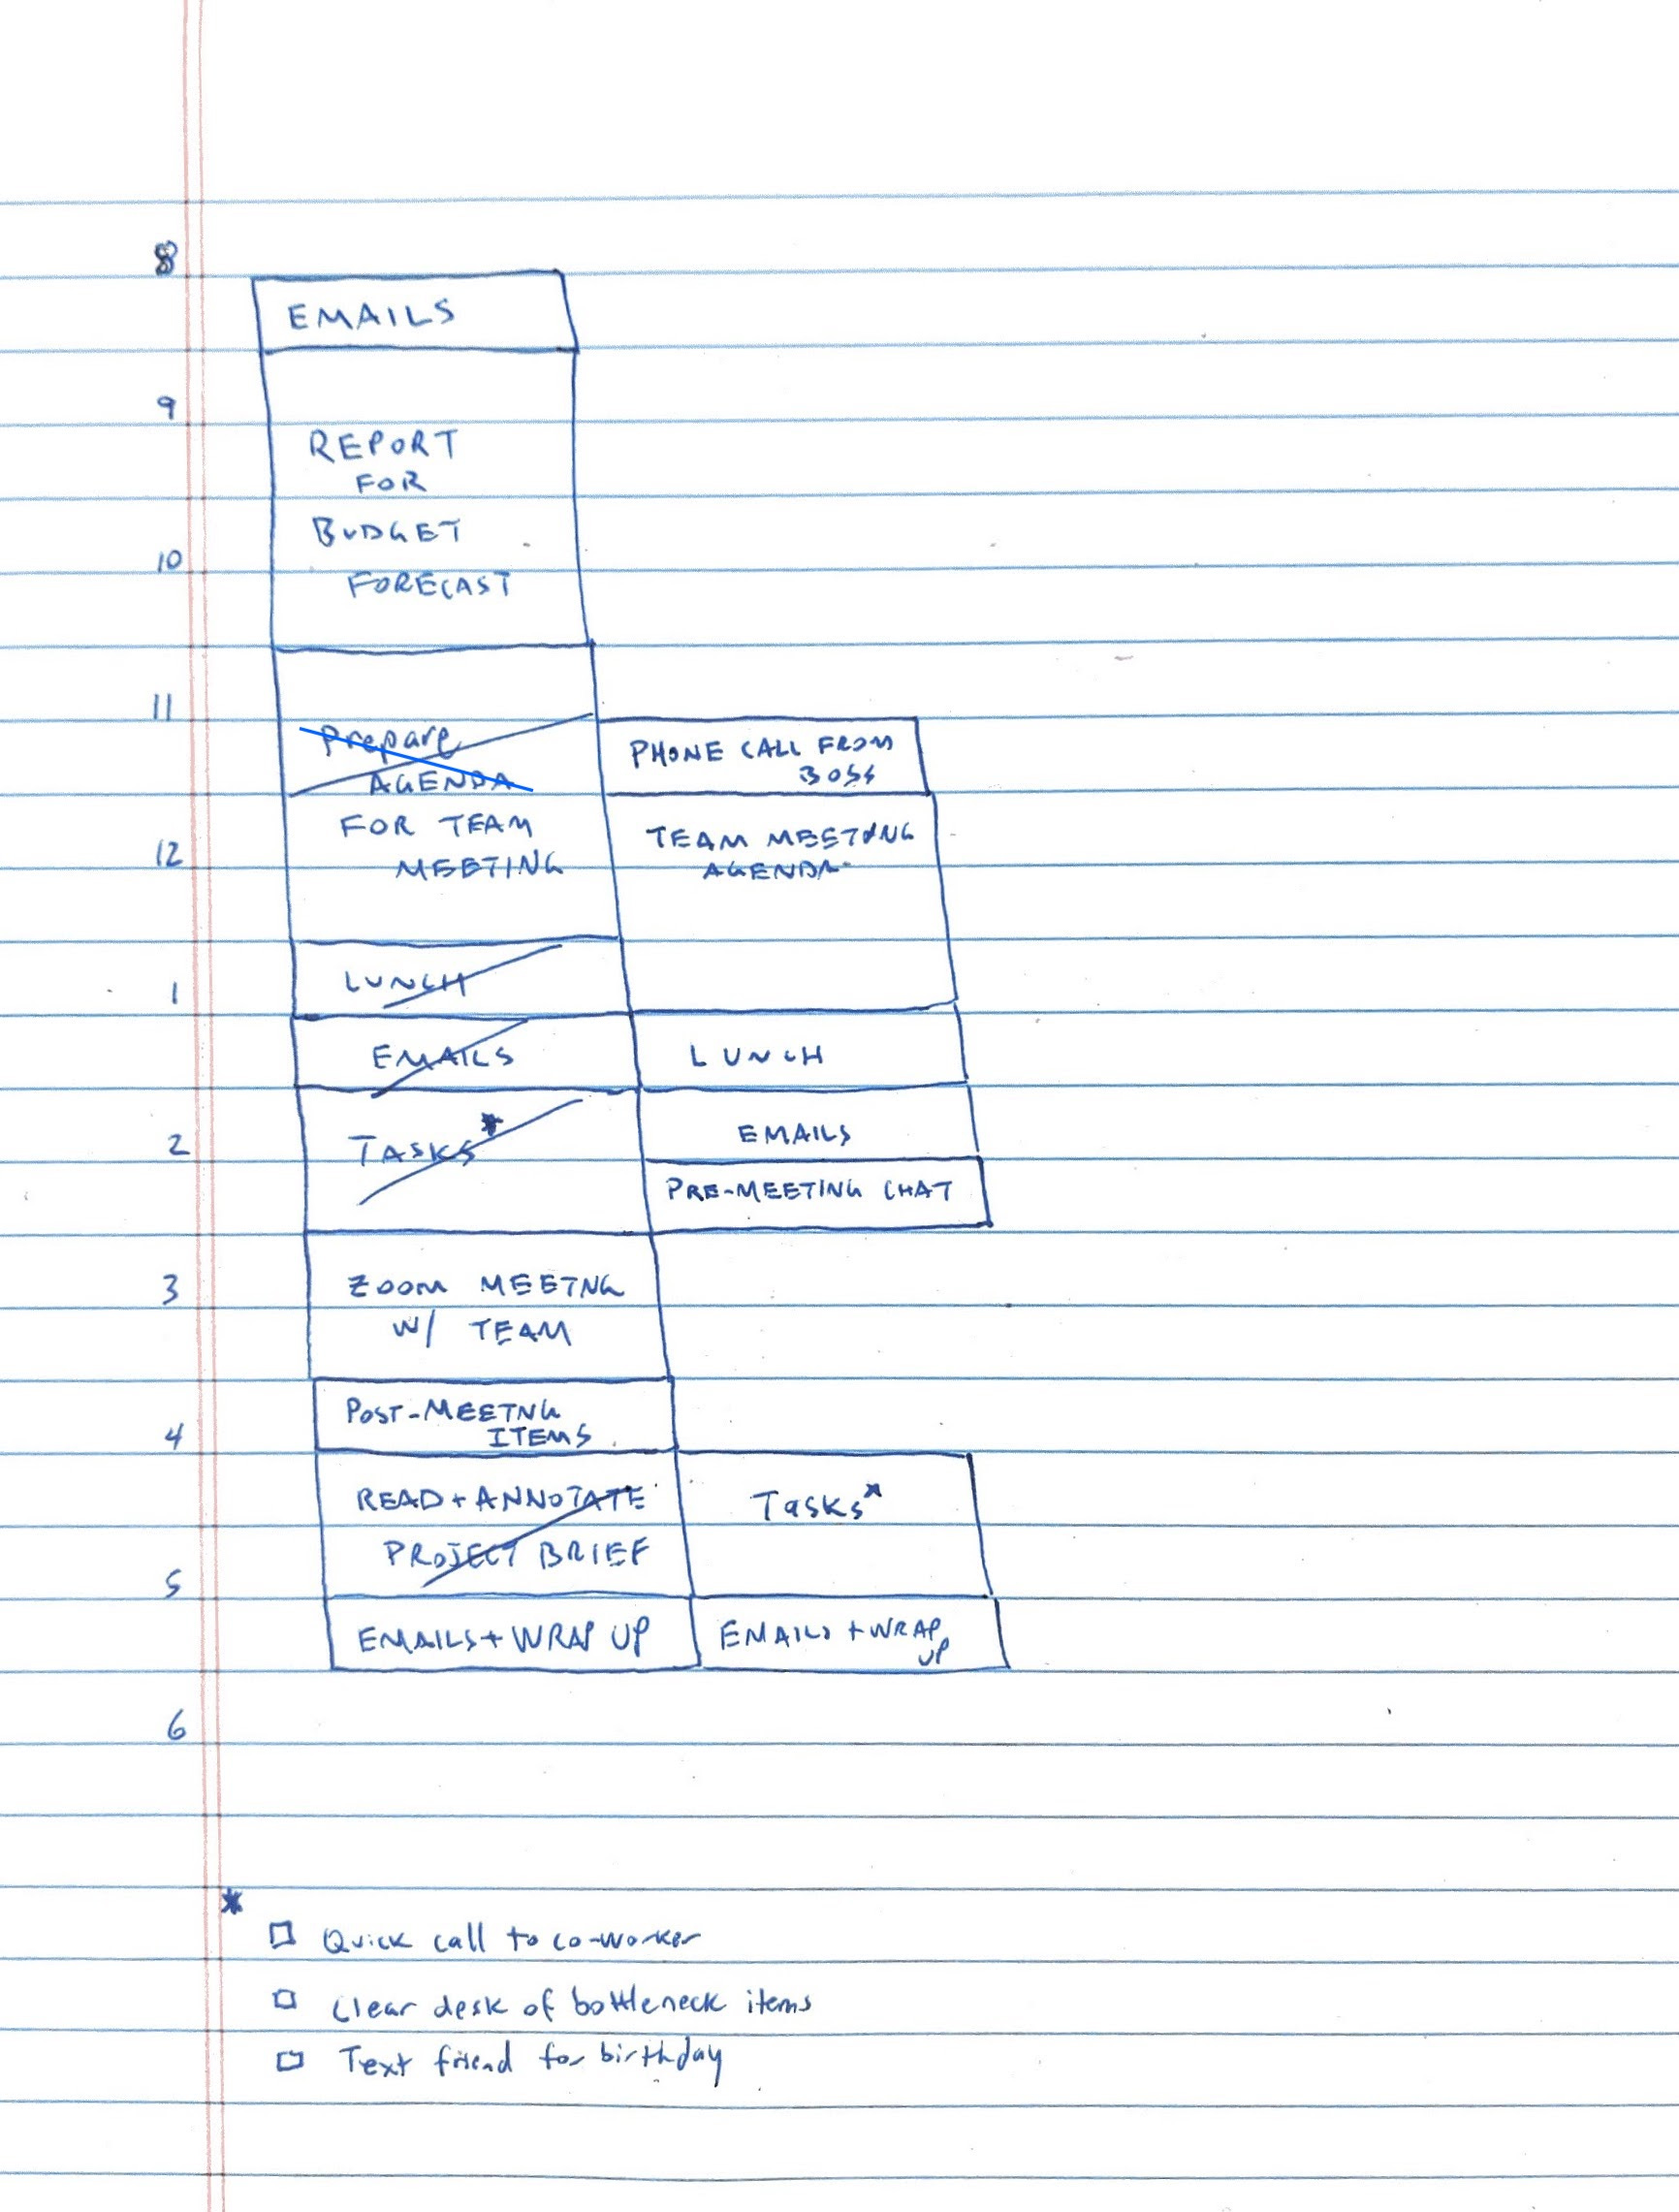 8
EMAILS
9
REPORT
FOR
BUDGET
10
FORECAST
11
Prepare
AGENDA
FOR TEAM
12
MEETING
LUNCH
1
EMAILS
TASKS*
2
ZOOM MEETNG
3
W/ TEAM
POST-MEETNG
ITEMS
4
READ + ANNOTATE
PROJECT BRIEF
5
EMAILS + WRAP UP
6
PHONE CALL FROM
BOSS
TEAM MEETING
AGENDA
LUNCH
EMAILS
PRE-MEETING CHAT
Tasks*
EMAILS + WRAP
UP
*
□ Quick call to co-worker
□ Clear desk of bottleneck items
□ Text friend for birthday